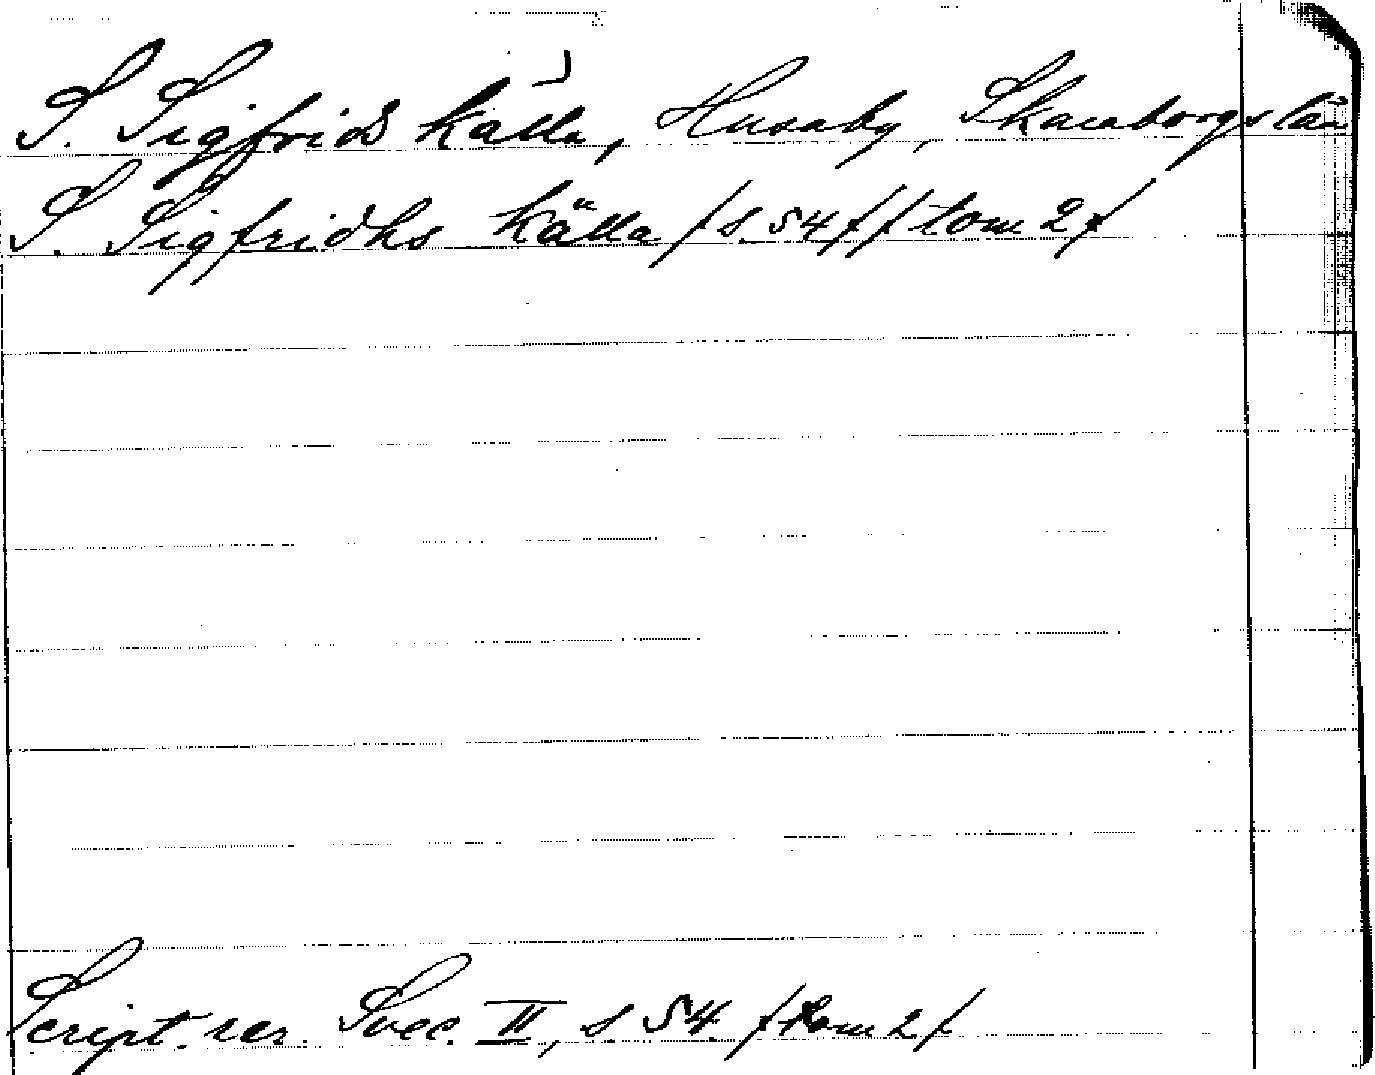 S. Sigfrids Källa, Husaby, Skaraborgs län
S. Sigfridhs Källa /s. 54 f/ /tom 2/
Script. rer. Svec. II, s 54. /tom 2/